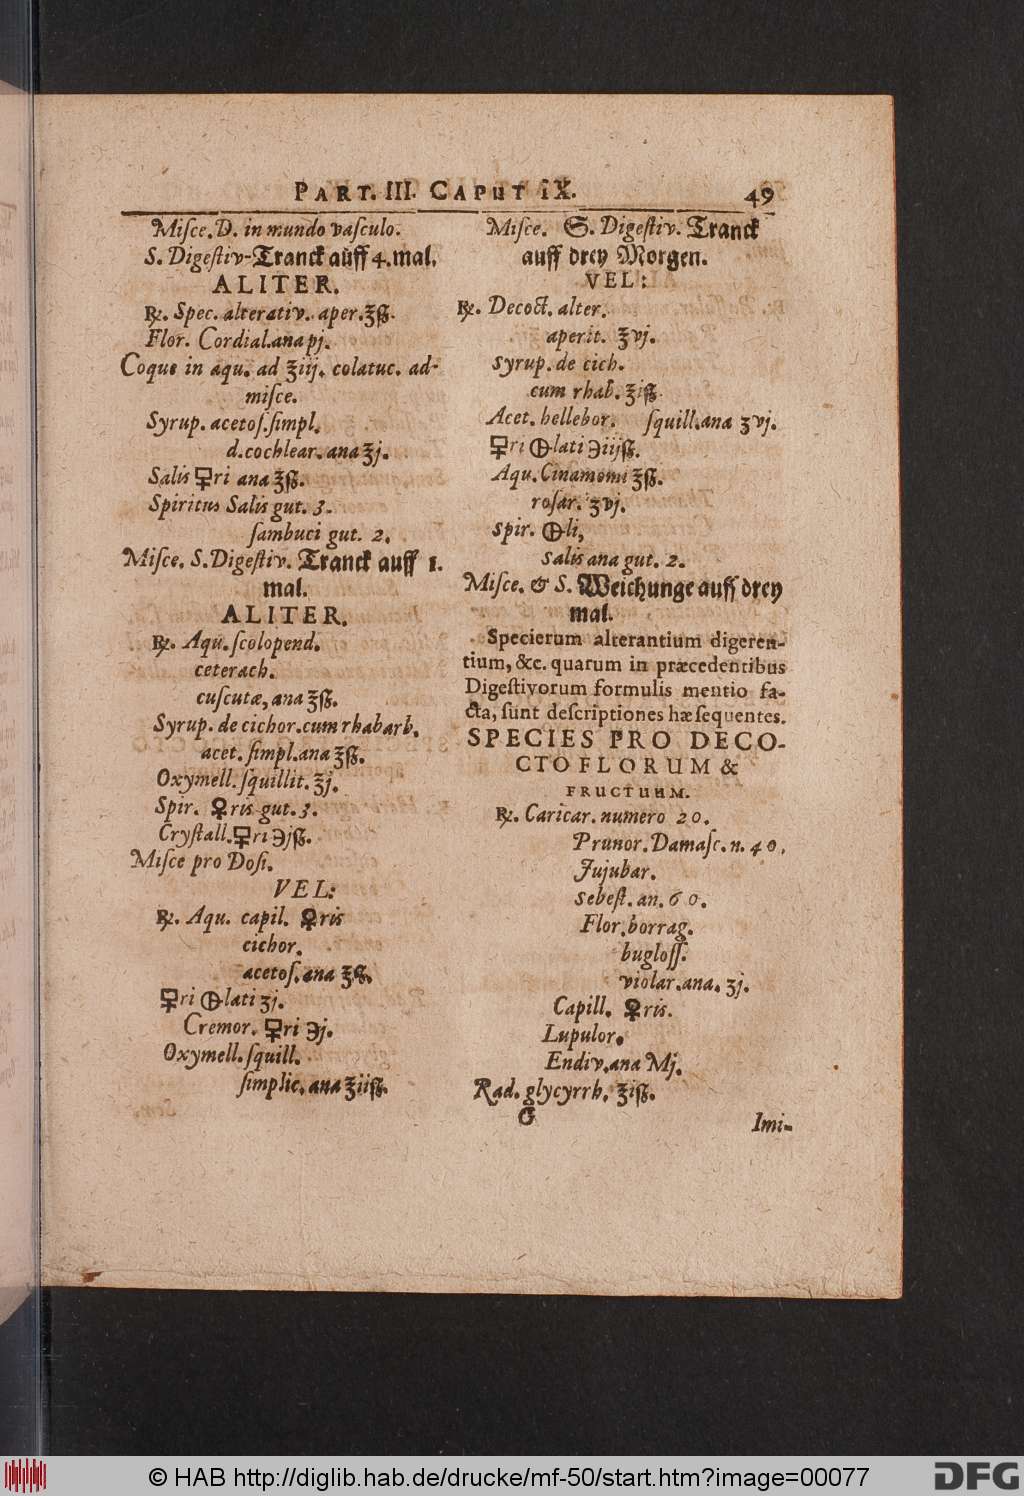 PART. III. CAPUT IX. 49
Miſce. D. in mundo vaſculo.
S. Digeſtiv-Tranck auff 4. mal.
ALITER.
℞. Spec. alterativ. aper. ℥ß.
Flor. Cordial. ana pj.
Coque in aqu. ad ℥iij. colatuc. ad-
miſce.
Syrup. acetoſ. ſimpl.
d. cochlear. ana ℥j.
Salis 🜿ri ana ℥ß.
Spiritus Salis gut. 3.
ſambuci gut. 2.
Miſce. S. Digeſtiv. Tranck auff 1.
mal.
ALITER.
℞. Aqu. ſcolopend.
ceterach.
cuſcutæ, ana ℥ß.
Syrup. de cichor. cum rhabarb.
acet. ſimpl. ana ℥ß.
Oxymell. ſquillit. ℥j.
Spir. ♀ris gut. 3.
Cryſtall. 🜿ri ℈jß.
Miſce pro Doſi.
VEL:
℞. Aqu. capil. ♀ris
cichor.
acetoſ. ana ℥ß.
🜿ri 🜕lati ʒj.
Cremor. 🜿ri ℈j.
Oxymell. ſquill.
ſimplic. ana ℥iiß.
Miſce. S. Digeſtiv. Tranck
auff drey Morgen.
VEL:
℞. Decoct. alter.
aperit. ℥vj.
Syrup. de cich.
cum rhab. ℥iß.
Acet. hellebor. ſquill. ana ʒvj.
🜿ri 🜕lati ℈iijß.
Aqu. Cinamomi ℥ß.
roſar. ʒvj.
Spir. 🜕li,
Salis ana gut. 2.
Miſce. & S. Weichunge auff drey
mal.
Specierum alterantium digeren-
tium, &c. quarum in præcedentibus
Digeſtivorum formulis mentio fa-
cta, ſunt deſcriptiones hæ ſequentes.
SPECIES PRO DECO-
CTO FLORUM &
FRUCTUUM.
℞. Caricar. numero 20.
Prunor. Damaſc. n. 40.
Jujubar.
Sebeſt. an. 60.
Flor. borrag.
bugloſſ.
violar. ana. ʒj.
Capill. ♀ris.
Lupulor.
Endiv. ana Mj.
Rad. glycyrrh. ℥iß.
G
Imi-
© HAB http://diglib.hab.de/drucke/mf-50/start.htm?image=00077
DFG